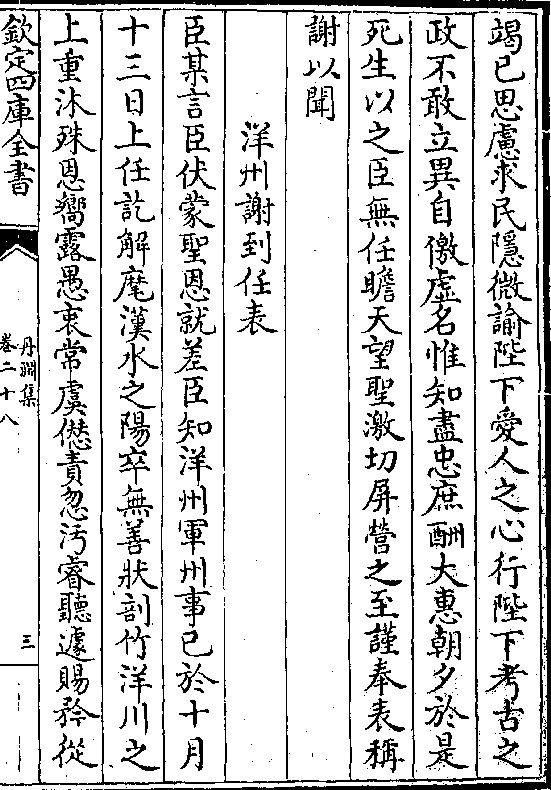 竭已思慮求民隱微諭陛下愛人之心行陛下考古之
政不敢立異自儌虛名惟知盡忠庶酬大惠朝夕於是
死生以之臣無任瞻天望聖激切屏營之至謹奉表稱
謝以聞
洋州謝到任表
臣某言臣伏蒙聖恩就差臣知洋州軍州事已於十月
十三日上任訖解麾漢水之陽卒無善狀剖竹洋川之
上重沐殊恩嚮露愚衷常虞僁責忽汚睿聽遽賜矜從
欽定四庫全書
丹淵集
卷二十八
三